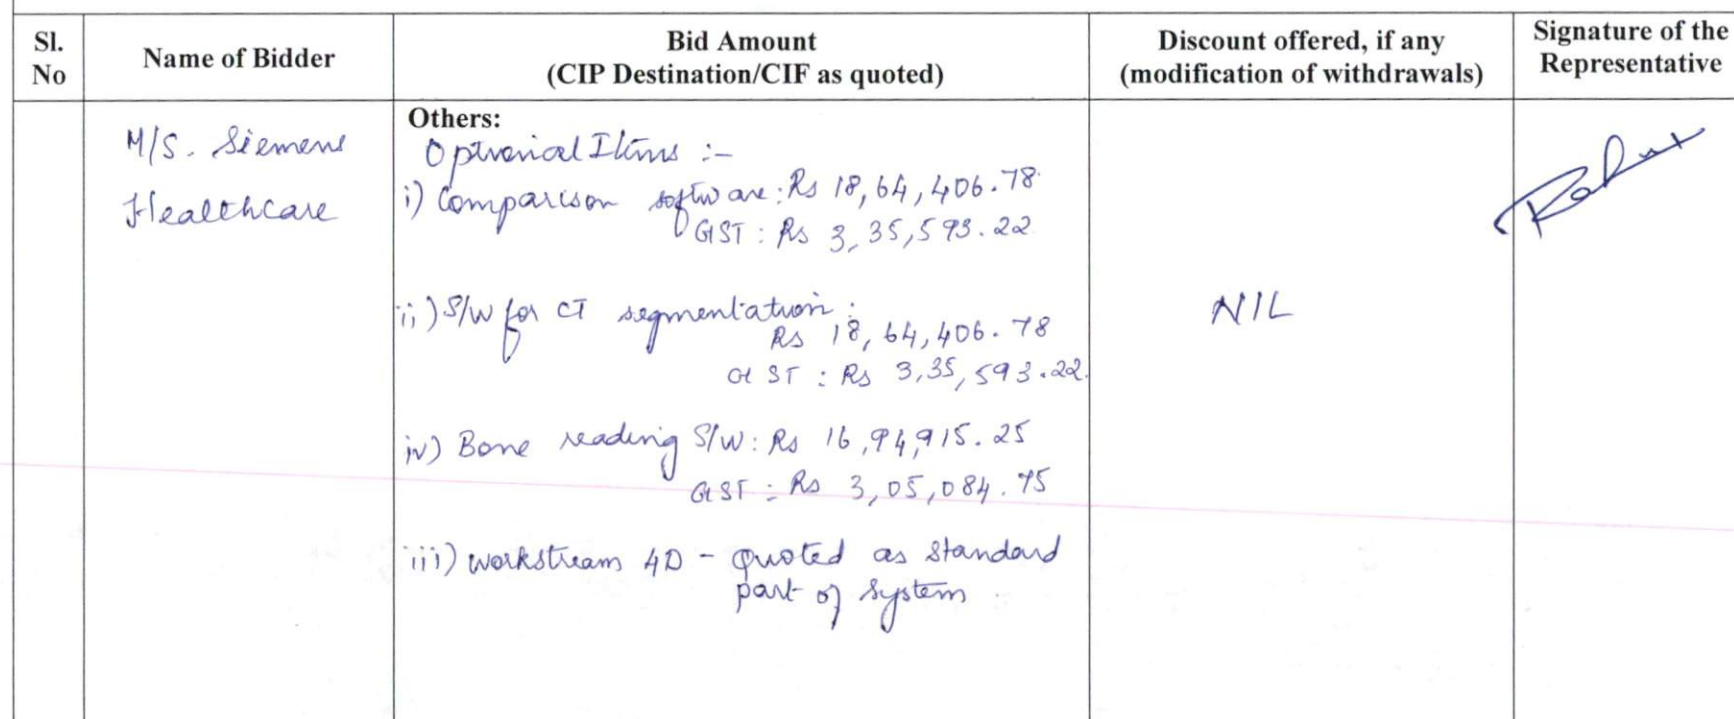 Sl. No
Name of Bidder
Bid Amount
(CIP Destination/CIF as quoted)
Discount offered, if any
(modification of withdrawals)
Signature of the
Representative
M/S. Siemens
Healthcare
Others:
Optional Items :-
i) Comparison software: Rs 18,64,406.78
GST : Rs 3,35,593.22
ii) S/W for CT segmentation :
Rs 18,64,406.78
GST : Rs 3,35,593.22
iv) Bone reading S/W: Rs 16,94,915.25
GST : Rs 3,05,084.75
iii) workstream 4D - quoted as standard
part of system
NIL